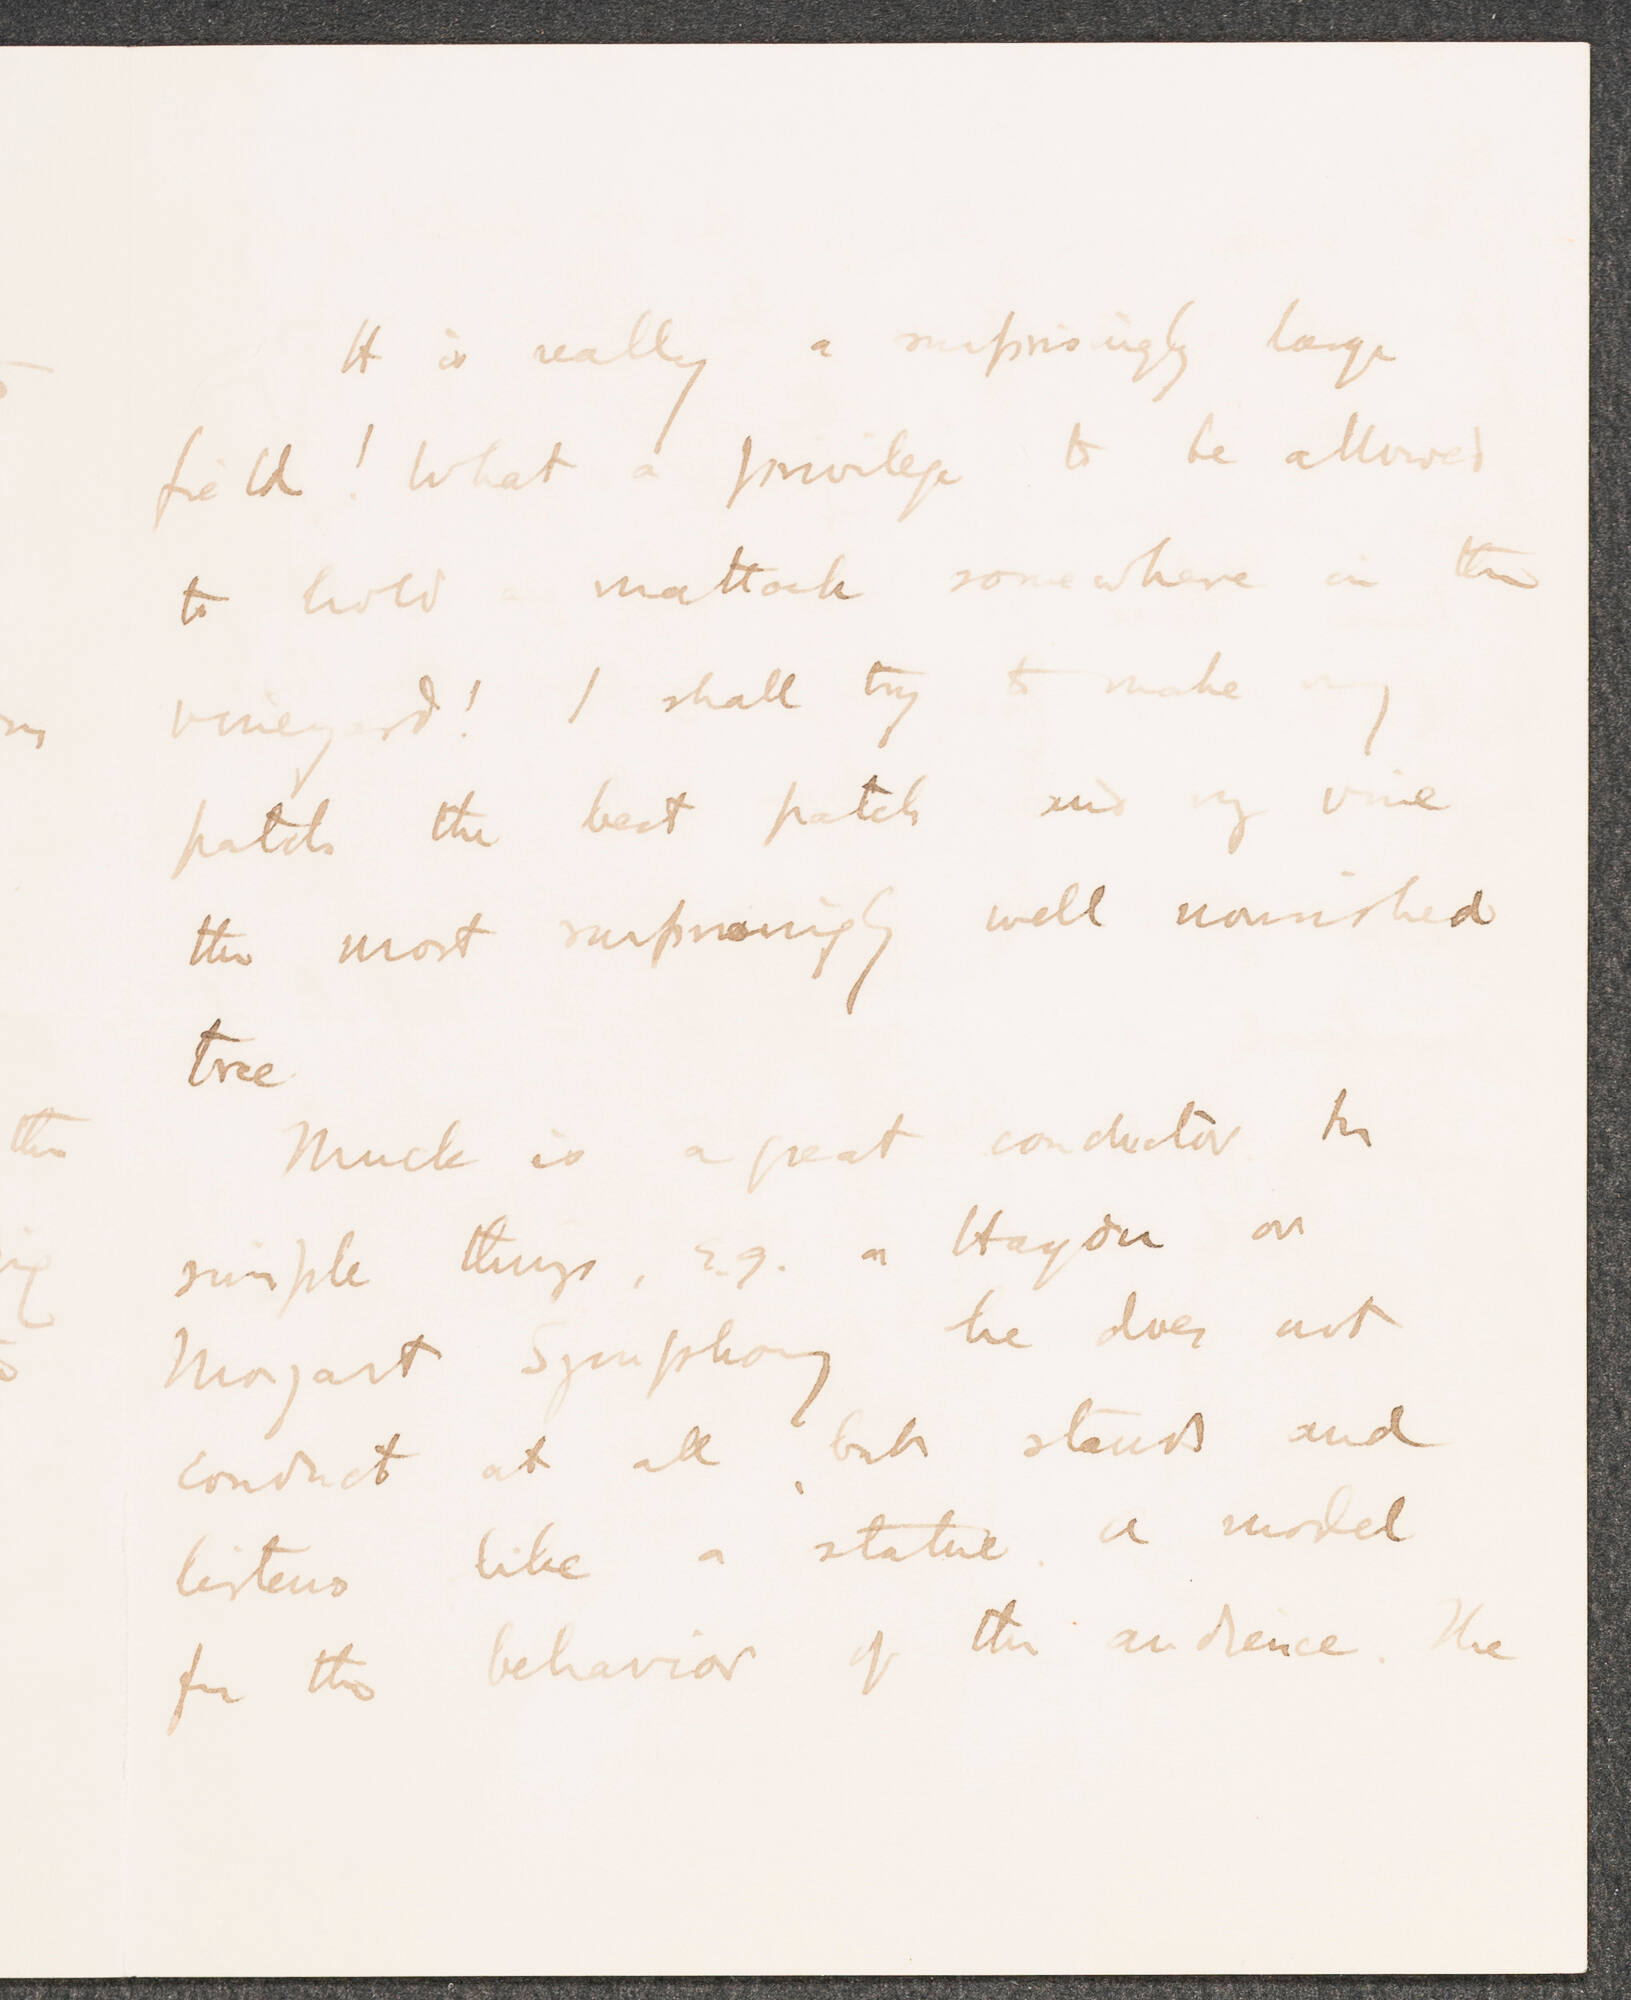 It is really a surprisingly large
field! What a privilege to be allowed
to hold a mattock somewhere in the
vineyard! I shall try to make my
patch the best patch and my vine
the most surprisingly well nourished
tree.
Muck is a great conductor. In
simple things, e.g. a Haydn or
Mozart Symphony he does not
conduct at all, but stands and
listens like a statue. A model
for the behavior of the audience. The
the